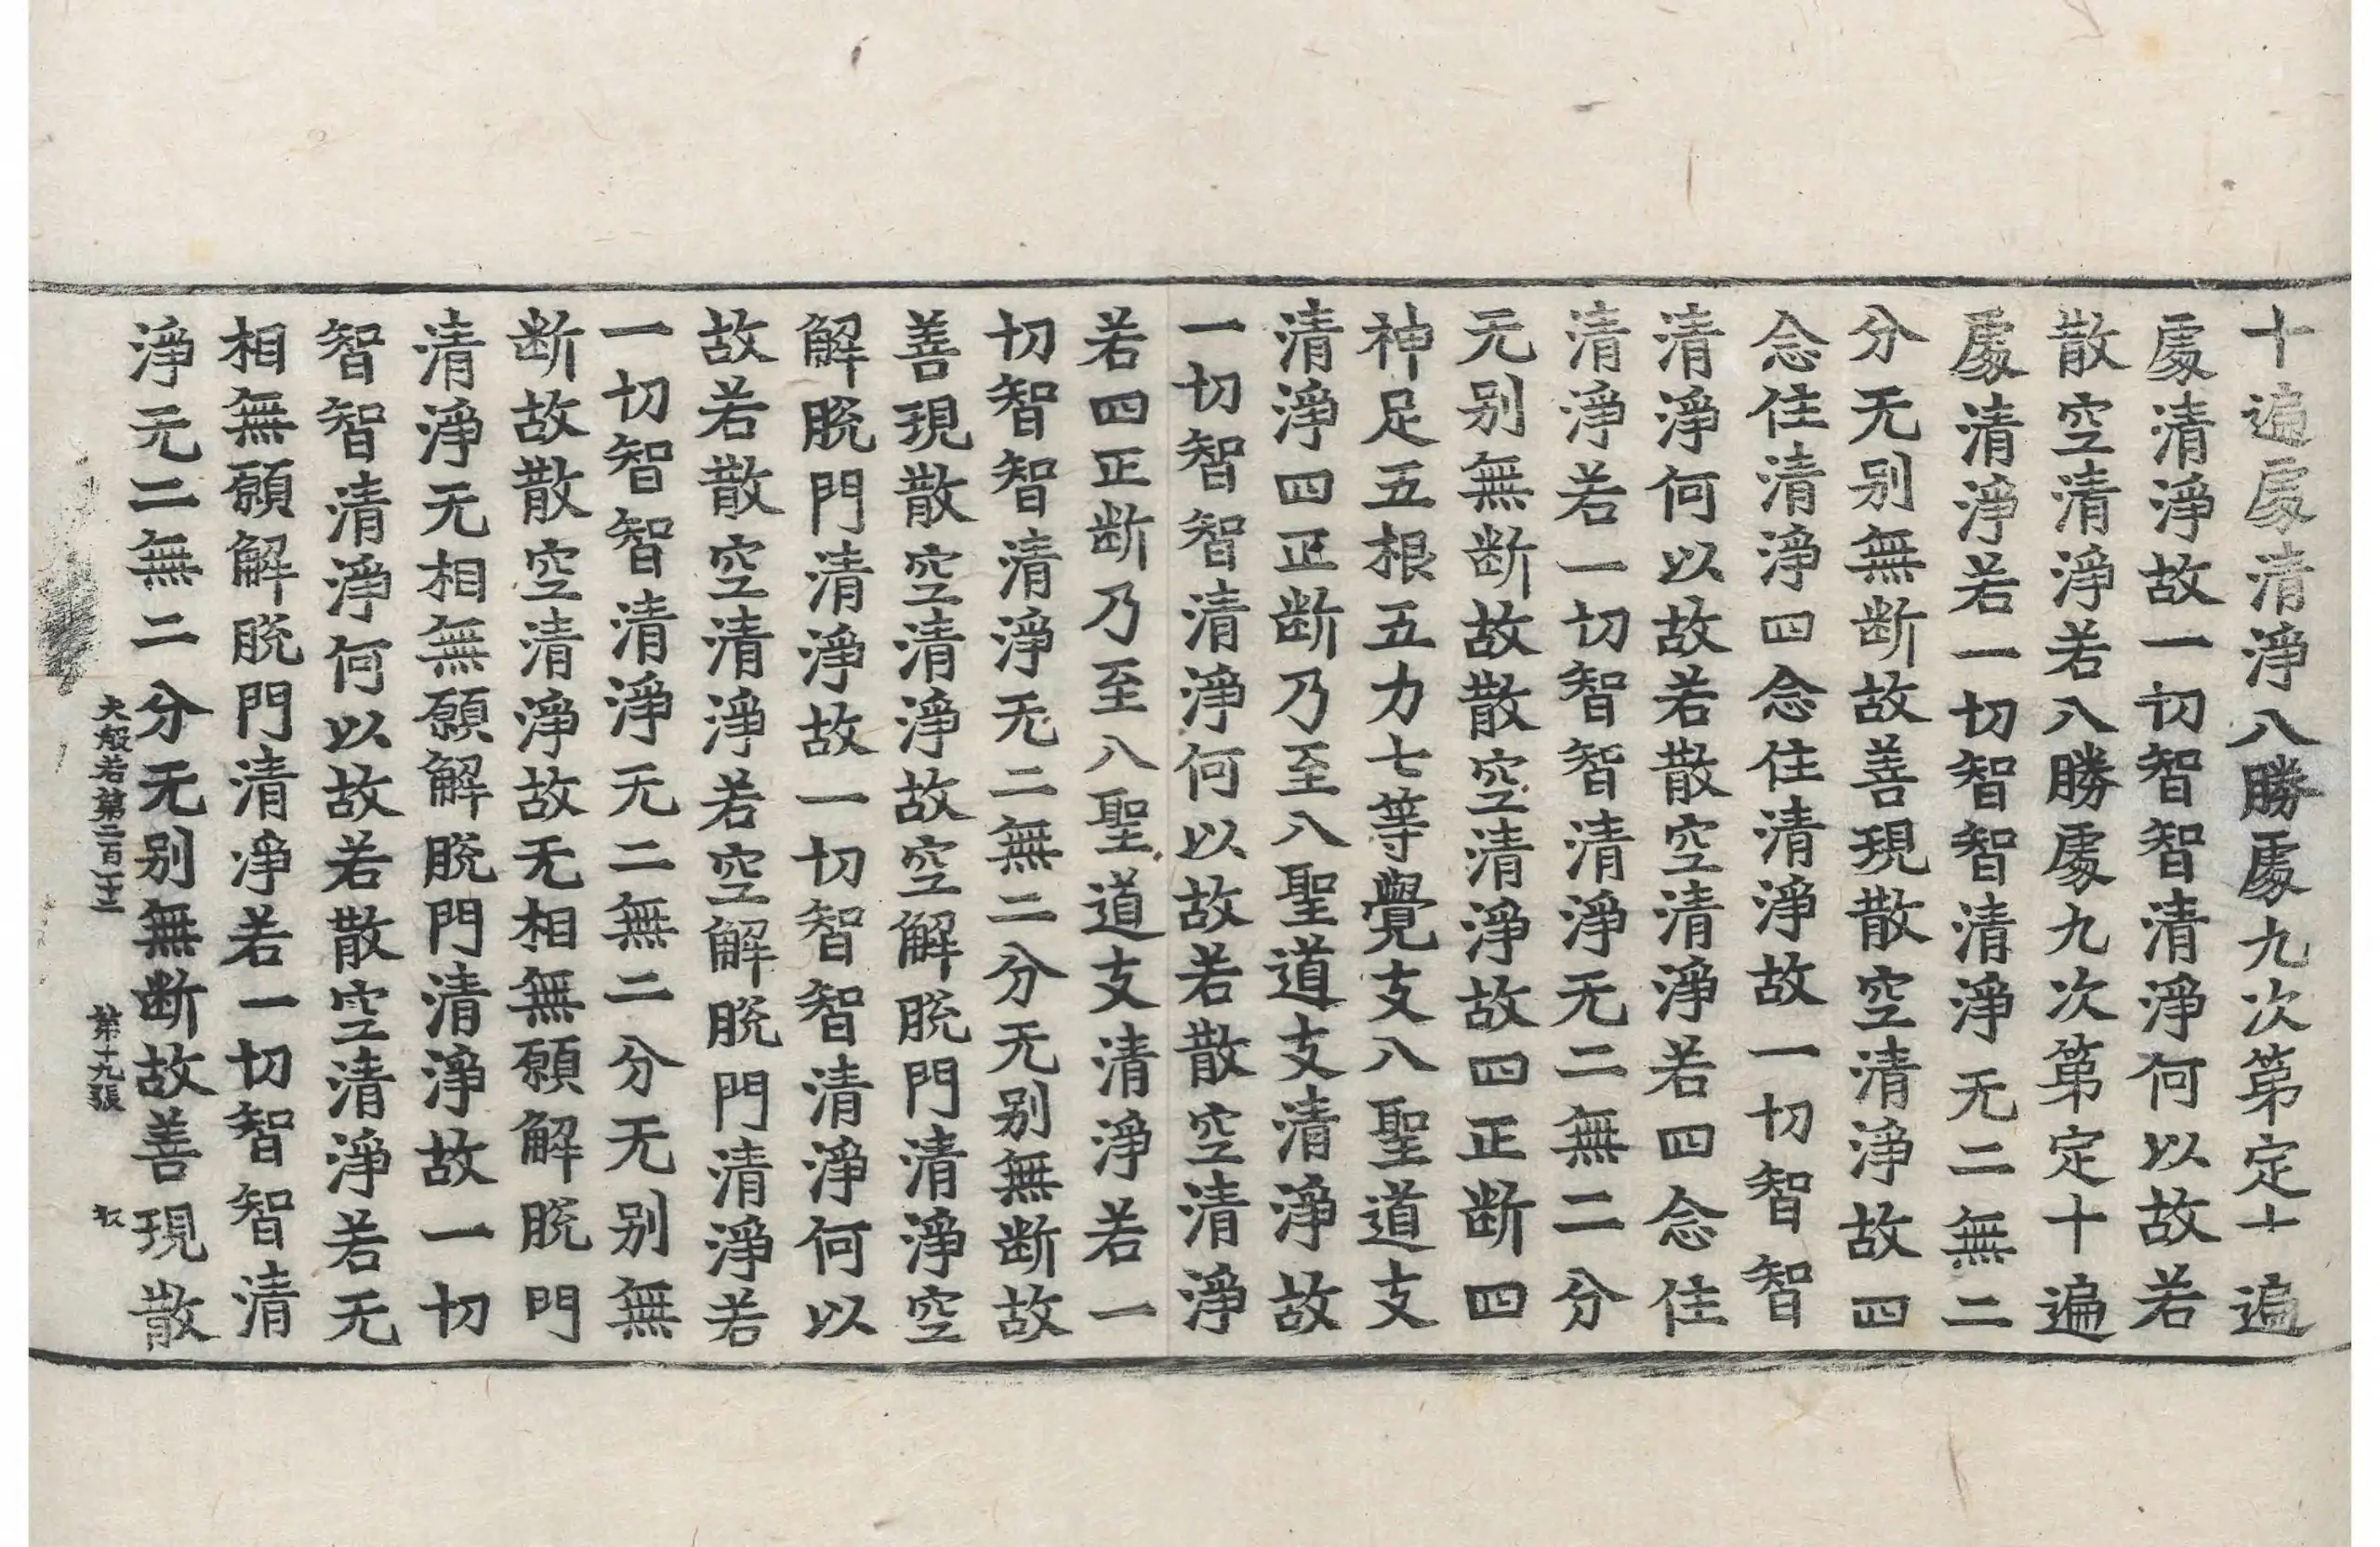 十遍處清淨八勝處九次第定十遍
處清淨故一切智智清淨何以故若
散空清淨若八勝處九次第定十遍
處清淨若一切智智清淨无二無二
分无别無断故善現散空清淨故四
念住清淨四念住清淨故一切智智
清淨何以故若散空清淨若四念住
清淨若一切智智清淨无二無二分
无别無断故散空清淨故四正断四
神足五根五力七等覺支八聖道支
清淨四正断乃至八聖道支清淨故
一切智智清淨何以故若散空清淨
若四正断乃至八聖道支清淨若一
切智智清淨无二無二分无别無断故
善現散空清淨故空解脫門清淨空
解脫門清淨故一切智智清淨何以
故若散空清淨若空解脫門清淨若
一切智智清淨无二無二分无别無
断故散空清淨故无相無願解脫門
清淨无相無願解脫門清淨故一切
智智清淨何以故若散空清淨若无
相無願解脫門清淨若一切智智清
淨无二無二分无别無断故善現散
大般若第二百二十三 第十九張